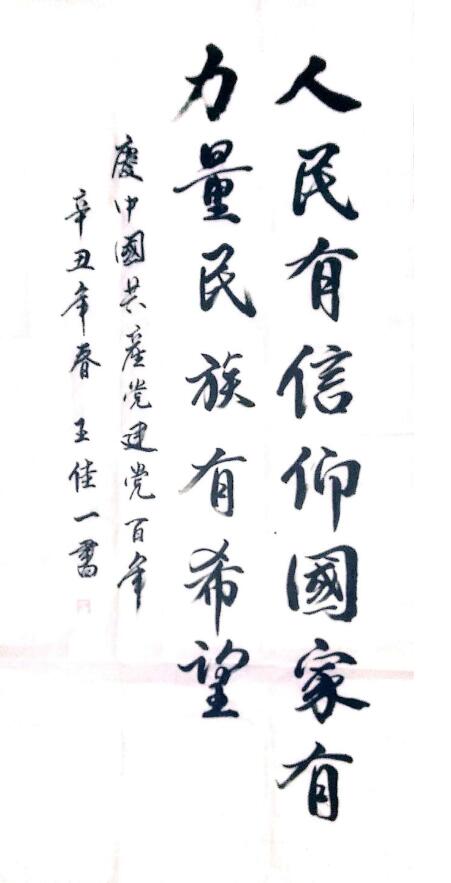 人民有信仰國家有
力量民族有希望
慶中國共產党建党百年
辛丑年春王佳一書